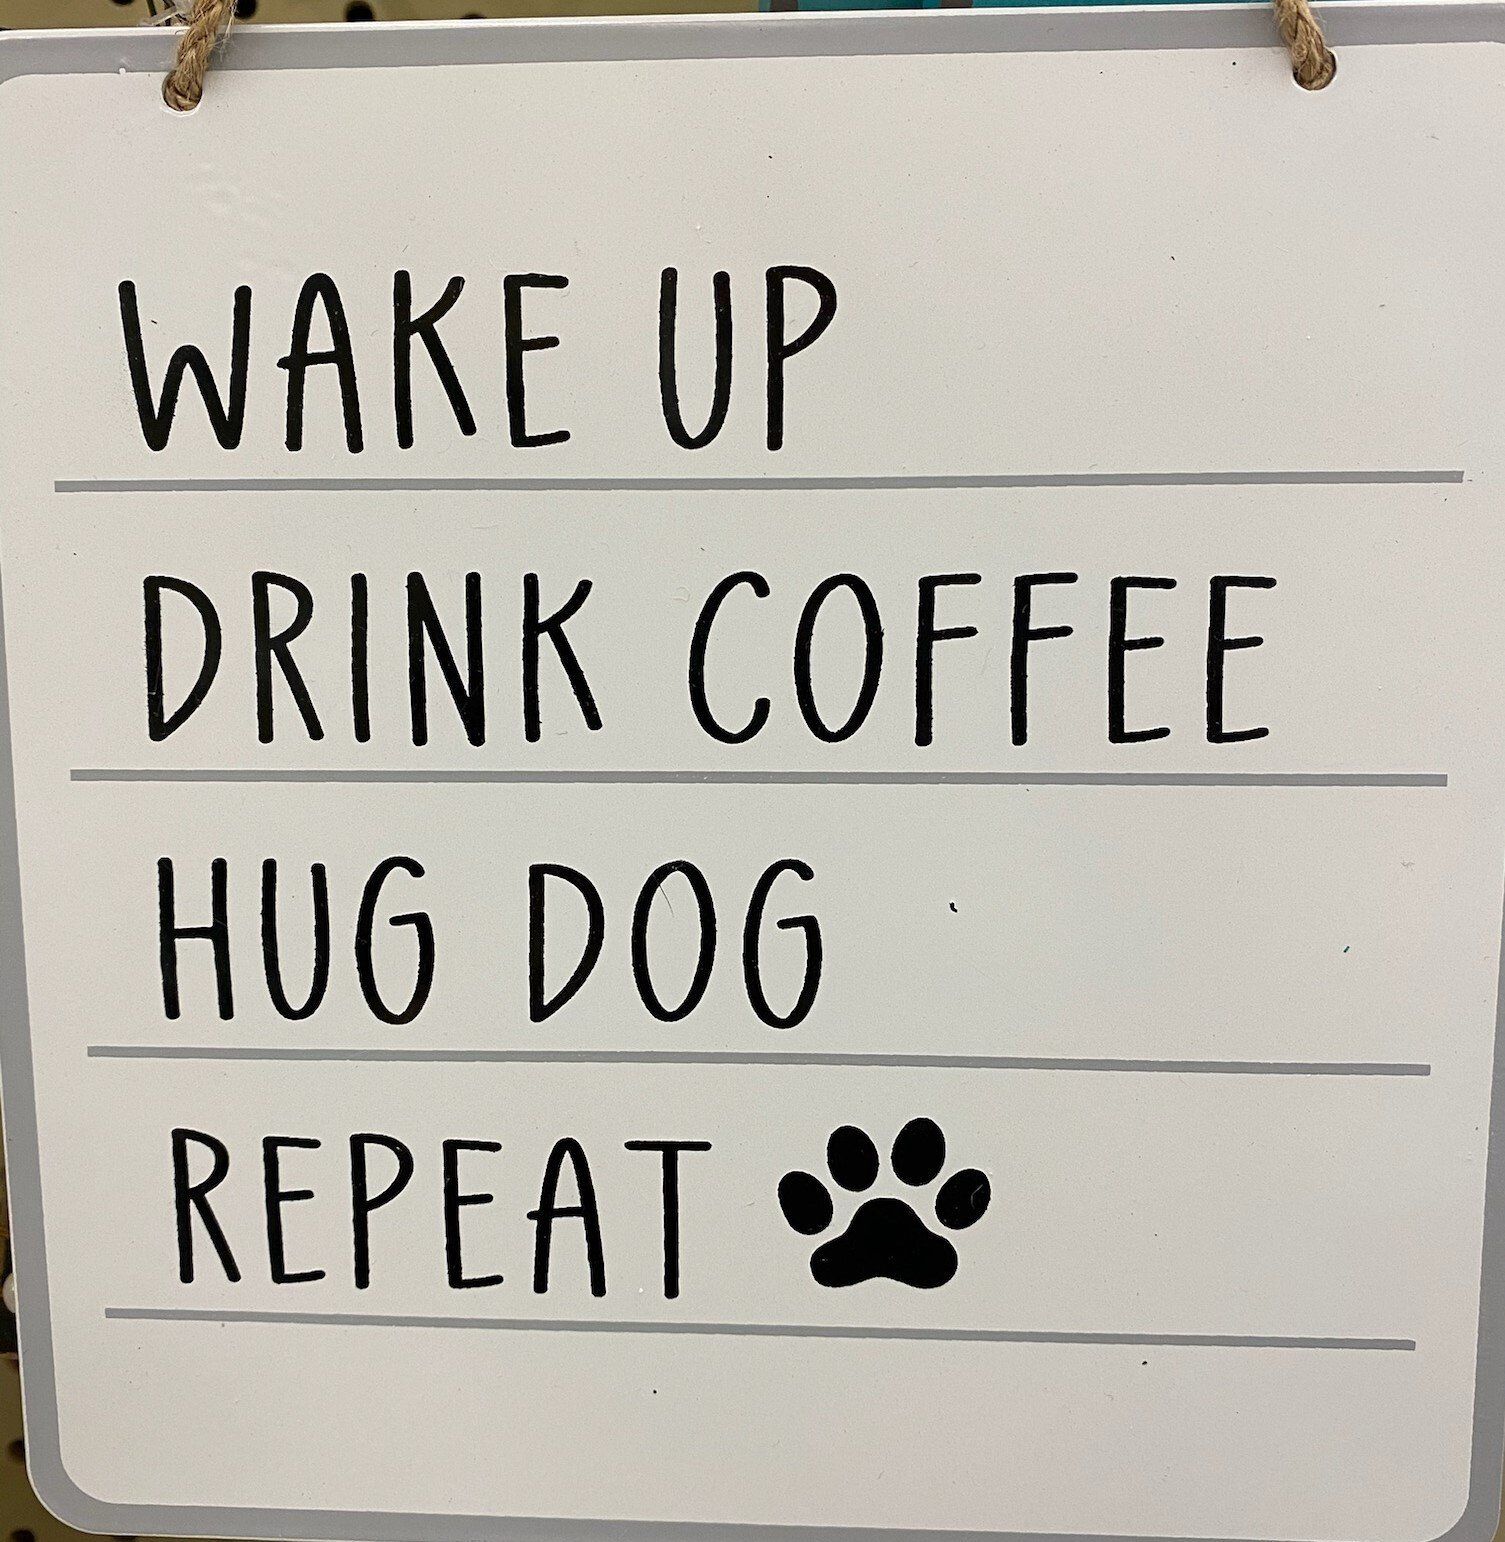 WAKE UP
DRINK COFFEE
HUG DOG
REPEAT